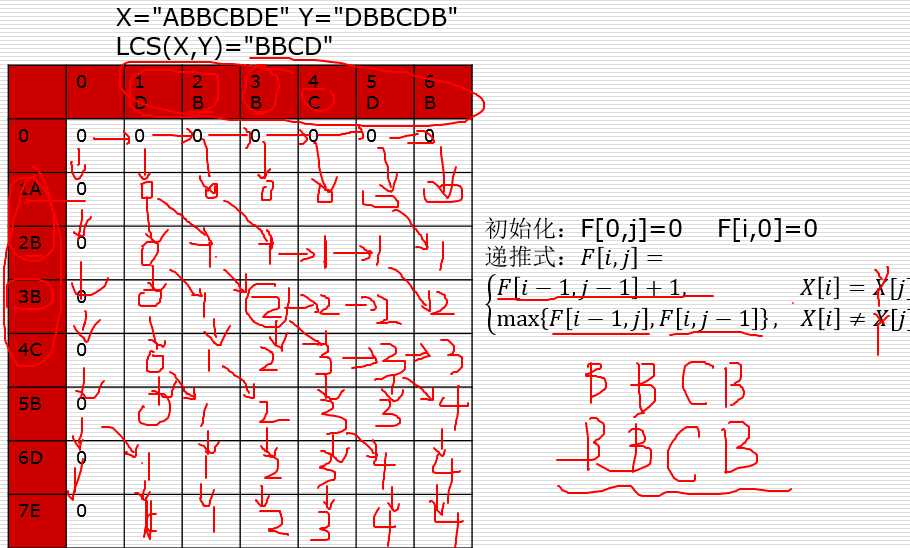 X="ABBCBDE" Y="DBBCDB"
LCS(X,Y)="BBCD"
0 1 2 3 4 5 6
D B B C D B
0 0 0 0 0 0 0 0
1A 0 0 0 0 0 0 0
2B 0 0 1 1 1 1 1
3B 0 0 1 2 2 2 2
4C 0 0 1 2 3 3 3
5B 0 0 1 2 3 3 4
6D 0 1 1 2 3 4 4
7E 0 1 1 2 3 4 4
初始化：F[0,j]=0 F[i,0]=0
递推式：F[i,j]=
F[i−1,j−1]+1, X[i]=Y[j]
max{F[i−1,j],F[i,j−1]}, X[i]≠Y[j]
B B C B
B B C B